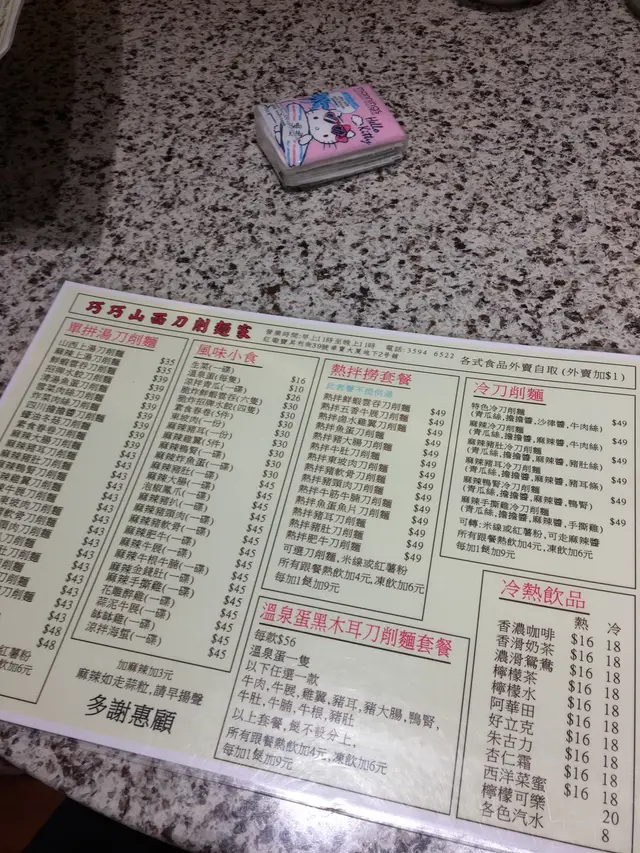 Hello Kitty
巧巧山西刀削麵家
營業時間:早上11時至晚上11時 電話: 3594 6522
各式食品外賣自取(外賣加$1)
單拼湯刀削麵
山西上湯刀削麵 $35
麻辣上湯刀削麵 $35
$39
$39
$39
$39
$39
$39
$43
$43
$43
$43
$43
$43
$43
$43
$43
$43
$43
$48
$48
風味小食
生菜(一碟) $16
溫泉蛋(每隻) $10
涼拌青瓜(一碟) $26
$30
$30
素食春卷(5件) $30
$30
麻辣雞翼(5件) $30
麻辣鴨腎(一碟) $30
$45
麻辣豬肚(一碟) $45
麻辣大腸(一碟) $45
泡椒鳳爪(一碟) $45
麻辣豬扒(一碟) $45
麻辣豬頭肉(一碟) $45
麻辣豬軟骨(一碟) $45
麻辣肥牛(一碟) $45
麻辣牛展(一碟) $45
麻辣牛根牛腩(一碟) $45
麻辣金錢肚(一碟) $45
麻辣手撕雞(一碟) $45
花雕醉雞(一碟) $45
蒜泥牛展(一碟) $45
缽缽雞(一碟) $45
涼拌海蜇(一碟) $45
加麻辣加3元
麻辣如走蒜粒,請早揚聲
多謝惠顧
熱拌撈套餐
此套餐不提供湯
熱拌鮮蝦雲吞刀削麵 $49
熱拌五香牛展刀削麵 $49
熱拌鹵水雞翼刀削麵 $49
熱拌魚蛋刀削麵 $49
熱拌豬大腸刀削麵 $49
熱拌牛肚刀削麵 $49
熱拌東坡肉刀削麵 $49
熱拌豬軟骨刀削麵 $49
熱拌豬頭肉刀削麵 $49
熱拌牛筋牛腩刀削麵 $49
熱拌魚蛋魚片刀削麵 $49
熱拌豬耳刀削麵 $49
熱拌豬肚刀削麵 $49
熱拌肥牛刀削麵 $49
可選刀削麵,米線或紅薯粉
所有跟餐熱飲加4元,凍飲加6元
每加1餸加9元
溫泉蛋黑木耳刀削麵套餐
每款$56
溫泉蛋一隻
以下任選一款
牛肉,牛展,雞翼,豬耳,豬大腸,鴨腎,
牛肚,牛腩,牛根,豬肚
以上套餐,餸不設分上,
所有跟餐熱飲加4元,凍飲加6元
每加1餸加9元
冷刀削麵
特色冷刀削麵 $49
(青瓜絲,擔擔醬,沙律醬,牛肉絲)
麻辣冷刀削麵 $49
(青瓜絲,擔擔醬,麻辣醬,牛肉絲)
麻辣豬肚冷刀削麵 $49
(青瓜絲,擔擔醬,麻辣醬,豬肚絲)
麻辣豬耳冷刀削麵 $49
(青瓜絲,擔擔醬,麻辣醬,豬耳條)
麻辣鴨腎冷刀削麵 $49
(青瓜絲,擔擔醬,麻辣醬,鴨腎)
麻辣手撕雞冷刀削麵 $49
(青瓜絲,擔擔醬,麻辣醬,手撕雞)
可轉:米線或紅薯粉,可走麻辣醬
所有跟餐熱飲加4元,凍飲加6元
每加1餸加9元
冷熱飲品
熱 冷
香濃咖啡 $16 18
香滑奶茶 $16 18
濃滑鴛鴦 $16 18
檸檬茶 $16 18
檸檬水 $16 18
阿華田 $16 18
好立克 $16 18
朱古力 $16 18
杏仁霜 $16 18
西洋菜蜜 $16 18
檸檬可樂 20
各色汽水 8